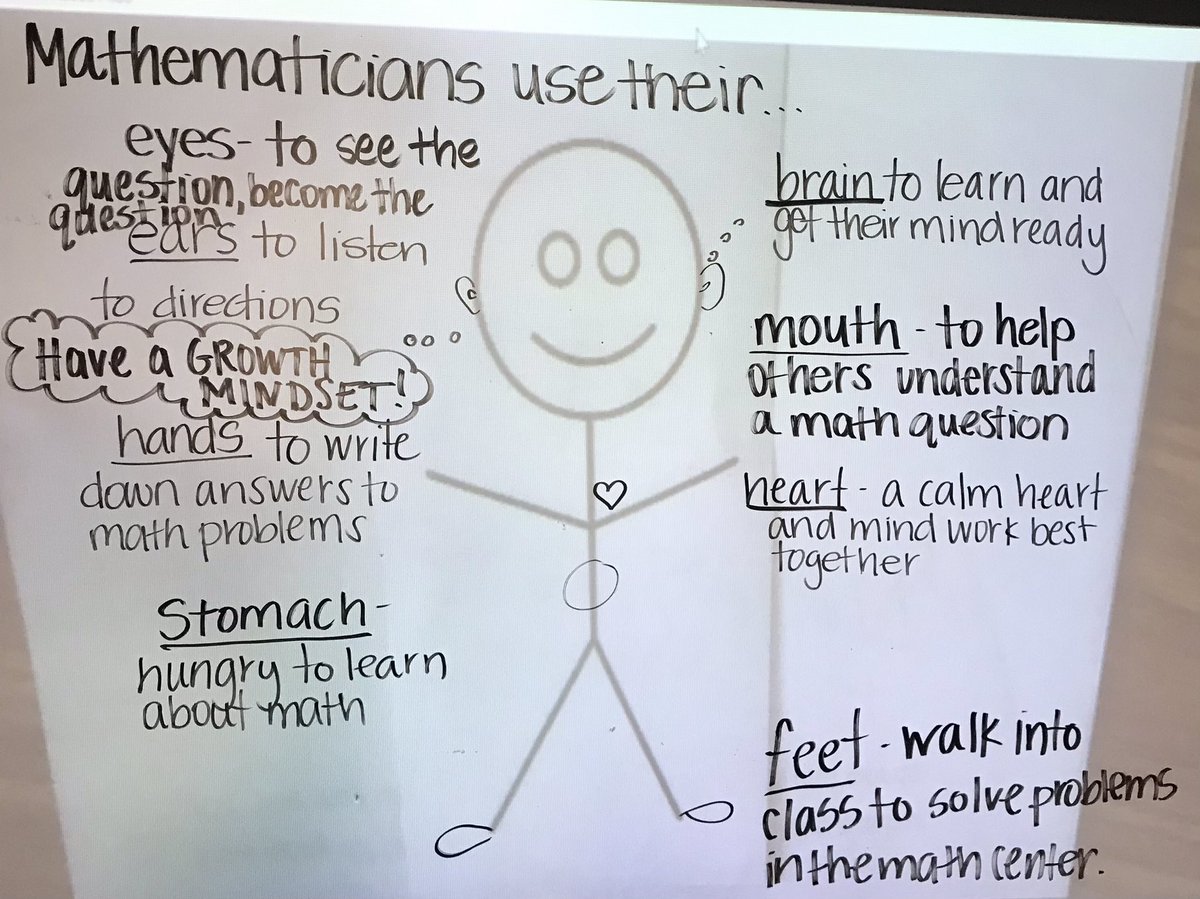 Mathematicians use their...
eyes- to see the
question, become the
question
ears to listen
to directions
Have a GROWTH
MINDSET!
hands to write
down answers to
math problems
Stomach-
hungry to learn
about math
brain to learn and
get their mind ready
mouth - to help
others understand
a math question
heart - a calm heart
and mind work best
together
feet - walk into
class to solve problems
in the math center.